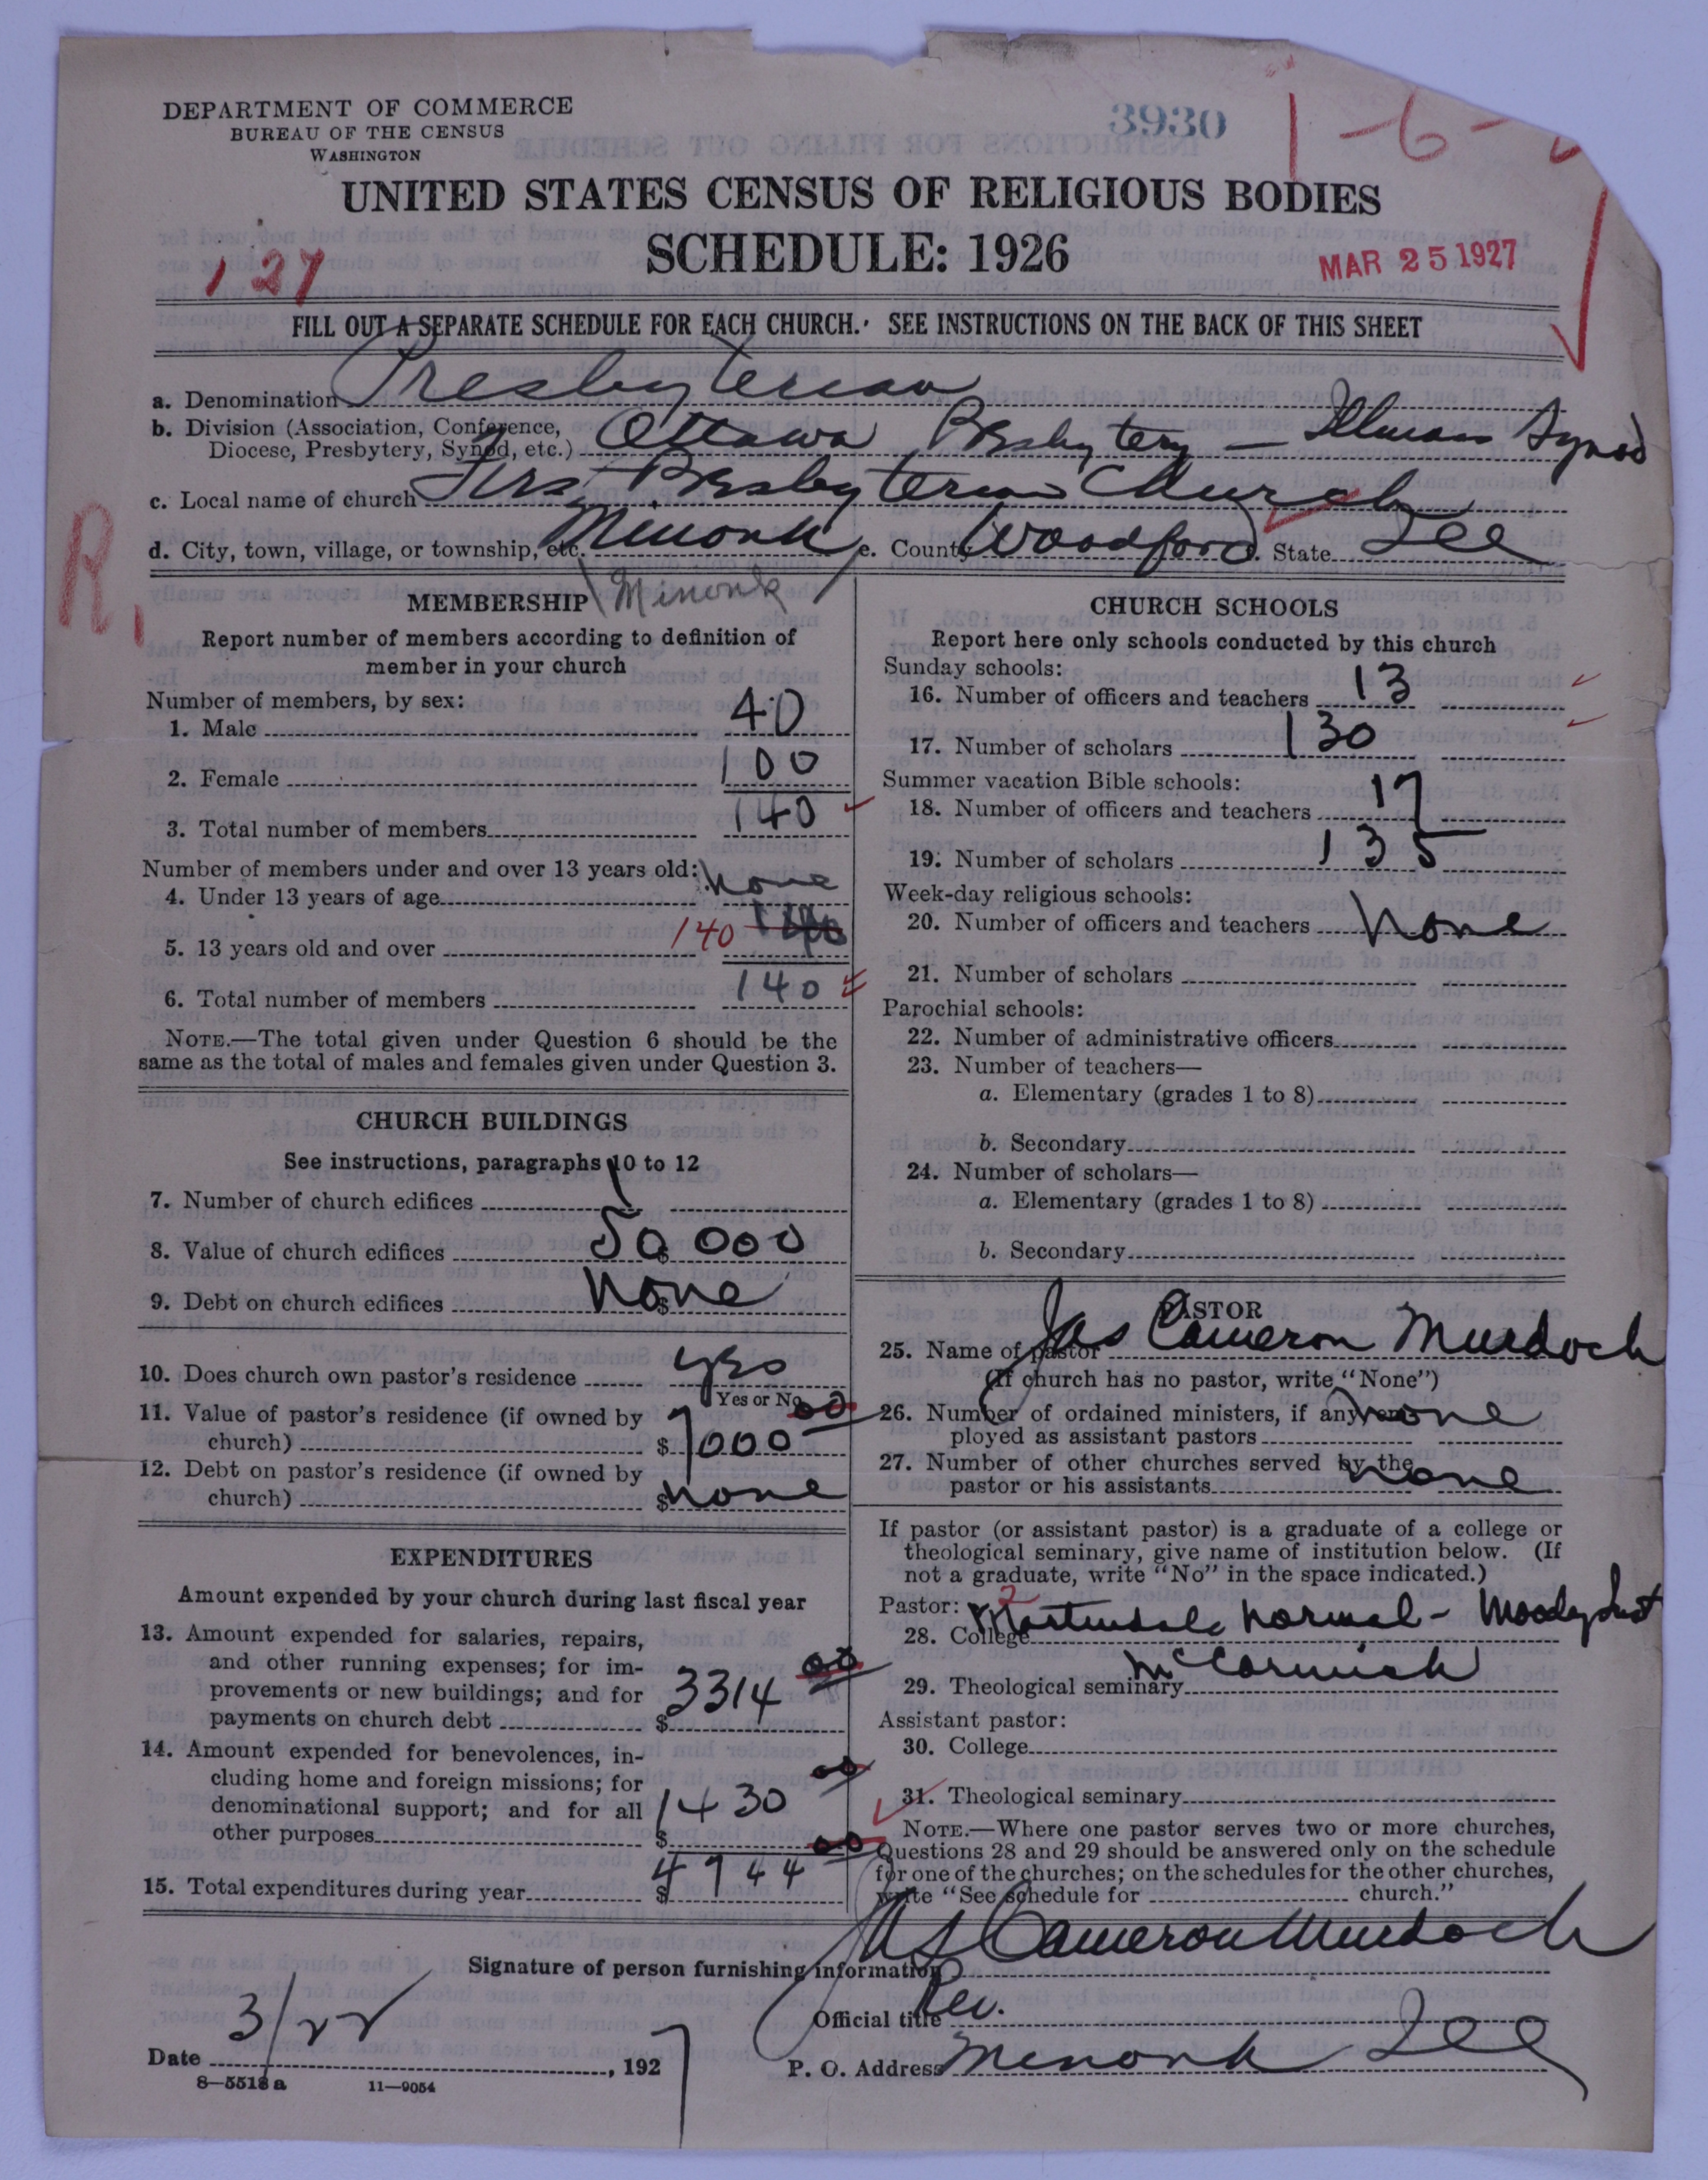 DEPARTMENT OF COMMERCE
BUREAU OF THE CENSUS
WASHINGTON
3930
1-6-
UNITED STATES CENSUS OF RELIGIOUS BODIES
SCHEDULE: 1926
127
MAR 25 1927
FILL OUT A SEPARATE SCHEDULE FOR EACH CHURCH. SEE INSTRUCTIONS ON THE BACK OF THIS SHEET
a. Denomination Presbyterian
b. Division (Association, Conference, Diocese, Presbytery, Synod, etc.) Ottawa Presbytery - Illinois Synod
c. Local name of church First Presbyterian Church
d. City, town, village, or township, etc. Minonk e. County Woodford f. State Ill
R.
Minonk
MEMBERSHIP
Report number of members according to definition of
member in your church
Number of members, by sex:
1. Male 40
2. Female 100
3. Total number of members 140
Number of members under and over 13 years old:
4. Under 13 years of age None
5. 13 years old and over 140
6. Total number of members 140
NOTE.—The total given under Question 6 should be the
same as the total of males and females given under Question 3.
CHURCH BUILDINGS
See instructions, paragraphs 10 to 12
7. Number of church edifices 1
8. Value of church edifices $50000
9. Debt on church edifices $None
10. Does church own pastor's residence yes
Yes or No
11. Value of pastor's residence (if owned by
church) $7000 00
12. Debt on pastor's residence (if owned by
church) $None
EXPENDITURES
Amount expended by your church during last fiscal year
13. Amount expended for salaries, repairs,
and other running expenses; for im-
provements or new buildings; and for
payments on church debt $3314 00
14. Amount expended for benevolences, in-
cluding home and foreign missions; for
denominational support; and for all
other purposes $1430 00
15. Total expenditures during year $4744 00
CHURCH SCHOOLS
Report here only schools conducted by this church
Sunday schools:
16. Number of officers and teachers 13
17. Number of scholars 130
Summer vacation Bible schools:
18. Number of officers and teachers 17
19. Number of scholars 135
Week-day religious schools:
20. Number of officers and teachers None
21. Number of scholars
Parochial schools:
22. Number of administrative officers
23. Number of teachers—
a. Elementary (grades 1 to 8)
b. Secondary
24. Number of scholars—
a. Elementary (grades 1 to 8)
b. Secondary
PASTOR
25. Name of pastor Jas Cameron Murdoch
(If church has no pastor, write "None")
26. Number of ordained ministers, if any, em-
ployed as assistant pastors None
27. Number of other churches served by the
pastor or his assistants None
If pastor (or assistant pastor) is a graduate of a college or
theological seminary, give name of institution below. (If
not a graduate, write "No" in the space indicated.)
Pastor: 2
28. College Martindale Normal - Moody Inst
29. Theological seminary McCormick
Assistant pastor:
30. College
31. Theological seminary
NOTE.—Where one pastor serves two or more churches,
Questions 28 and 29 should be answered only on the schedule
for one of the churches; on the schedules for the other churches,
write "See schedule for church."
Signature of person furnishing information Jas Cameron Murdoch
Official title Rev.
Date 3/22, 1927
P. O. Address Minonk Ill
8—5518 a 11—9054